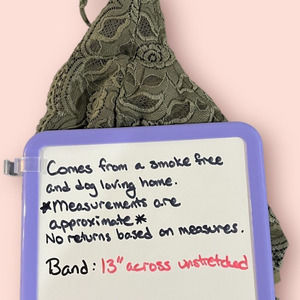 Comes from a smoke free
and dog loving home.
*Measurements are
approximate*
No returns based on measures.
Band: 13" across unstretched